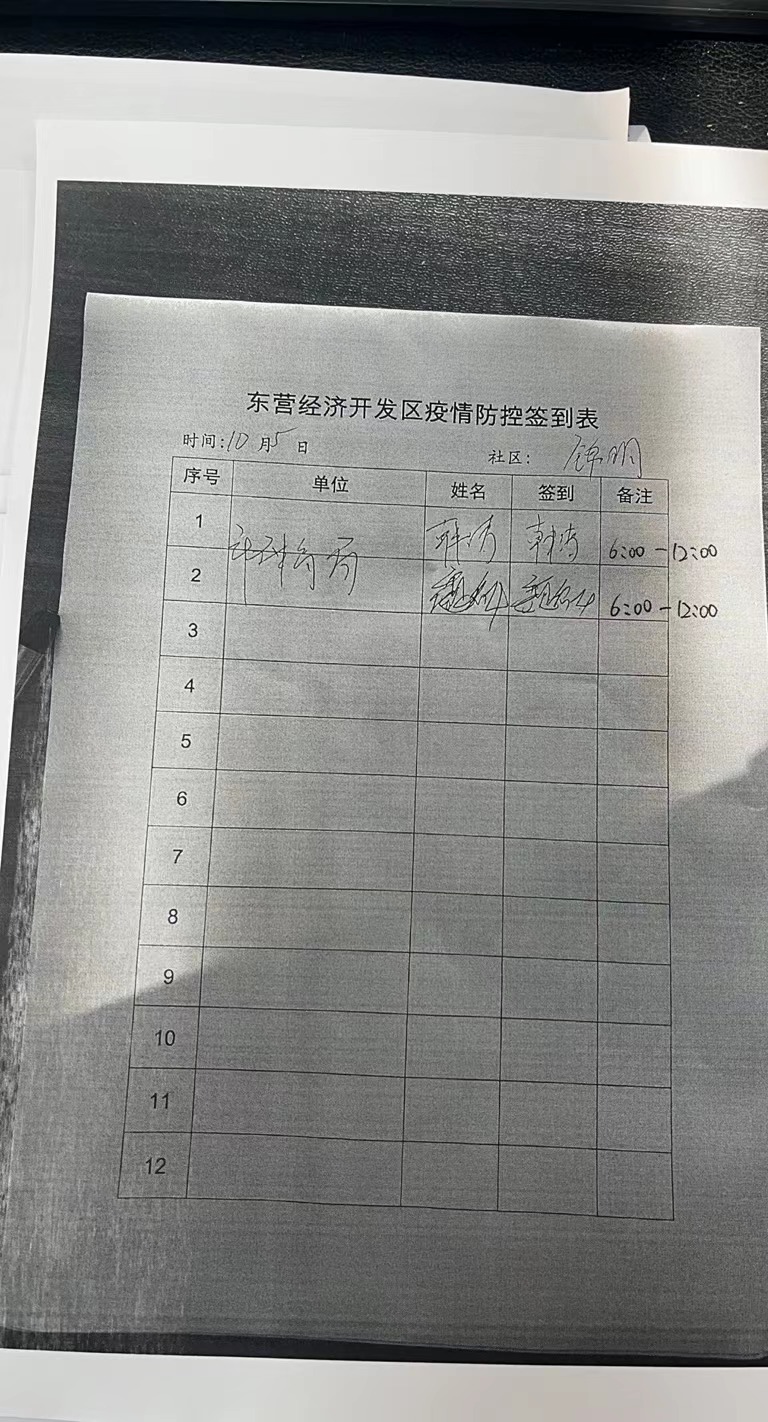 东营经济开发区疫情防控签到表
时间:10月5日 社区: 锦明
序号 单位 姓名 签到 备注
1 韩涛 韩涛 6:00-12:00
2 6:00-12:00
3
4
5
6
7
8
9
10
11
12